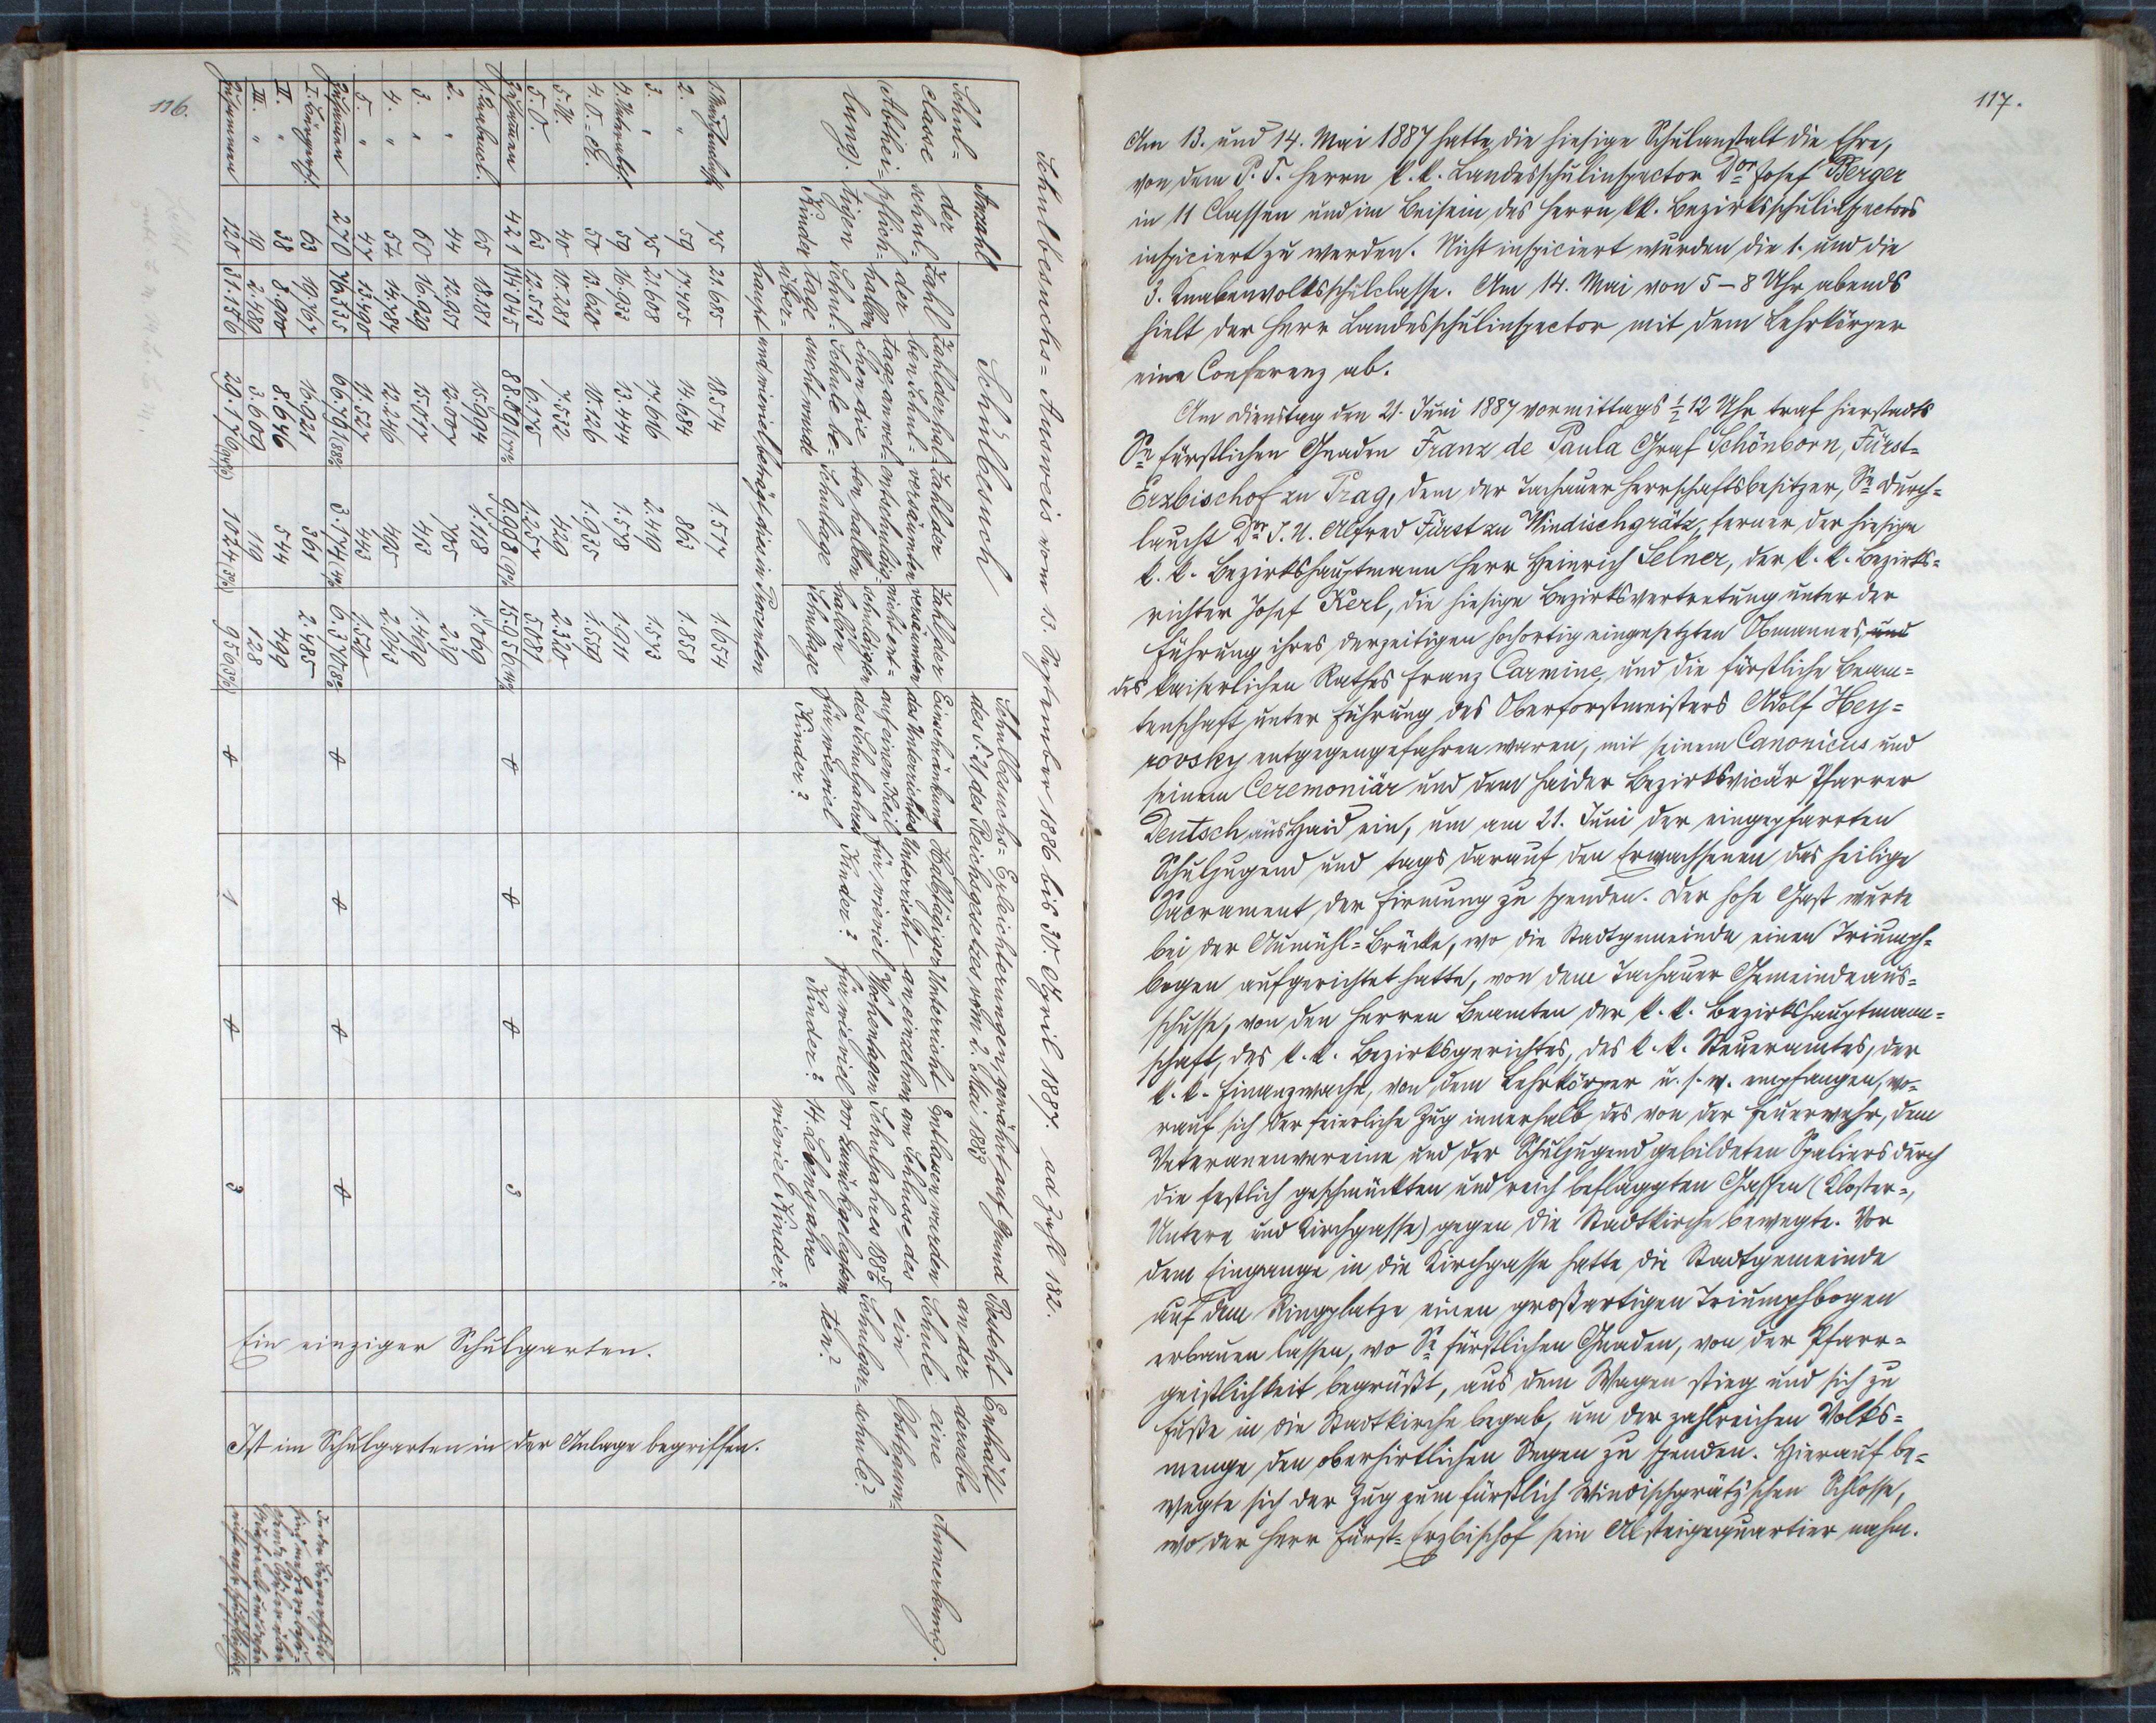 116.
Schulbesuchs-Ausweis vom 13. September 1886 bis 30. April 1887. ad Zahl 182.
Schul=
classe
Abthei=
lung.
Anzahl
der
schul=
pflich=
tigen
Kinder
Schulbesuch
Zahl
der
halben
Schul=
tage
über=
haupt
Zahl der hal=
ben Schul=
tage, an wel=
chen die
Schule be=
sucht wurde
Zahl der
versäumten
entschuldig=
ten halben
Schultage
Zahl der
versäumten
nicht ent=
schuldigten
halben
Schultage
und wieviel beträgt dies in Procenten
Schulbesuchs=Erleichterungen, gewährt auf Grund
des § 21 des Reichsgesetzes vom 2. Mai 1883
Einschränkung
des Unterrichtes
auf einen Theil
des Schuljahres
für wieviel
Kinder?
Halbtägiger
Unterricht
für wieviel
Kinder?
Unterricht
an einzelnen
Wochentagen
für wieviel
Kinder?
Entlassen wurden
am Schlusse des
Schuljahres 1886
vor zurückgelegtem
14. Lebensjahre
wieviel Kinder?
Besteht
an der
Schule
ein
Schulgar=
ten?
Enthält
derselbe
eine
Obstbaum=
schule?
Anmerkung.
1. Mädchenclasse 75 21.685 18.574 1.577 1.654
2. " 59 17.405 14.684 863 1.858
3. " 75 21.608 17.616 2.419 1.573
4. Unterabth. 59 16.933 13.444 1.578 1.911
4. O.=A. 50 13.620 10.126 1.935 1.559
5. U. 40 10.281 7.532 429 2.320
5. O. 63 12.513 6.175 1.257 5.081
Zusammen 421 114.045 9.998 3
1. Knabencl. 65 18.181 15.994 1.118 1.069
2. " 44 12.951 12.007 705 239
3. " 60 16.929 15.017 443 1.469
4. " 54 14.784 12.246 495 2.043
5. " 47 13.490 11.527 443 1.520
Zusammen 270 76.335 66.791 3.174 6.370
I. Bürgersch. 63 19.767 16.921 361 2.485
II. " 38 8.900 8.646 544 499
III. " 19 2.489 3.609 119 128
Zusammen 120 31.156 29.176 1024 956 1 3
Ein einziger Schulgarten.
Ist im Schulgarten in der Anlage begriffen.
117.
Am 13. und 14. Mai 1887 hatte die hiesige Schulanstalt die Ehre,
von dem P. T. Herrn k. k. Landesschulinspector Dor Josef Berger
in 11 Classen und im Beisein des Herrn kk. Bezirksschulinspectors
inspiciert zu werden. Nicht inspiciert wurden die 1. und die
3. Knabenvolksschulclasse. Am 14. Mai von 5 – 8 Uhr abends
hielt der Herr Landesschulinspector mit dem Lehrkörper
eine Conferenz ab.
Am Dienstag den 21. Juni 1887 vormittags ½ 12 Uhr traf hierstadts
Se fürstlichen Gnaden Franz de Paula Graf Schönborn, Fürst=
Erzbischof zu Prag, dem der Tachauer Herrschaftsbesitzer, Se Durch=
laucht Dor J. U. Alfred Fürst zu Windischgrätz, ferner der hiesige
k. k. Bezirkshauptmann Herr Heinrich Selner, der k. k. Bezirks=
richter Josef Kerl, die hiesige Bezirksvertretung unter der
Führung ihres derzeitigen hochortig eingesetzten Obmannes, und
des kaiserlichen Rathes Franz Carmine, und die fürstliche Beam=
tenschaft unter Führung des Oberforstmeisters Adolf Hey=
rovsky entgegengefahren waren, mit seinem Canonicus und
seinem Ceremoniär und dem Haider Bezirksvicär Pfarrer
Deutsch aus Haid ein, um am 21. Juni der eingepfarrten
Schuljugend und tags darauf den Erwachsenen das heilige
Sacrament der Firmung zu spenden. Der hohe Gast wurde
bei der Aumühl=Brücke, wo die Stadtgemeinde einen Triumph=
bogen aufgerichtet hatte, von dem Tachauer Gemeindeaus=
schusse, von den Herren Beamten der k. k. Bezirkshauptmann=
schaft, des k. k. Bezirksgerichtes, des k. k. Steueramtes, der
k. k. Finanzwache, von dem Lehrkörper u. s. w. empfangen, wo=
rauf sich der feierliche Zug innerhalb des von der Feuerwehr, dem
Veteranenvereine und der Schuljugend gebildeten Spaliers durch
die festlich geschmückten und reich beflaggten Gassen (Kloster=,
Untere und Kirchgasse) gegen die Stadtkirche bewegte. Vor
dem Eingange in die Kirchgasse hatte die Stadtgemeinde
auf dem Ringplatze einen großartigen Triumphbogen
erbauen lassen, wo Se fürstlichen Gnaden, von der Pfarr=
geistlichkeit begrüßt, aus dem Wagen stieg und sich zu
Fuße in die Stadtkirche begab, um der zahlreichen Volks=
menge den oberhirtlichen Segen zu spenden. Hierauf be=
wegte sich der Zug zum fürstlich Windischgrätz'schen Schlosse,
wo der Herr Fürst=Erzbischof sein Absteigequartier nahm.